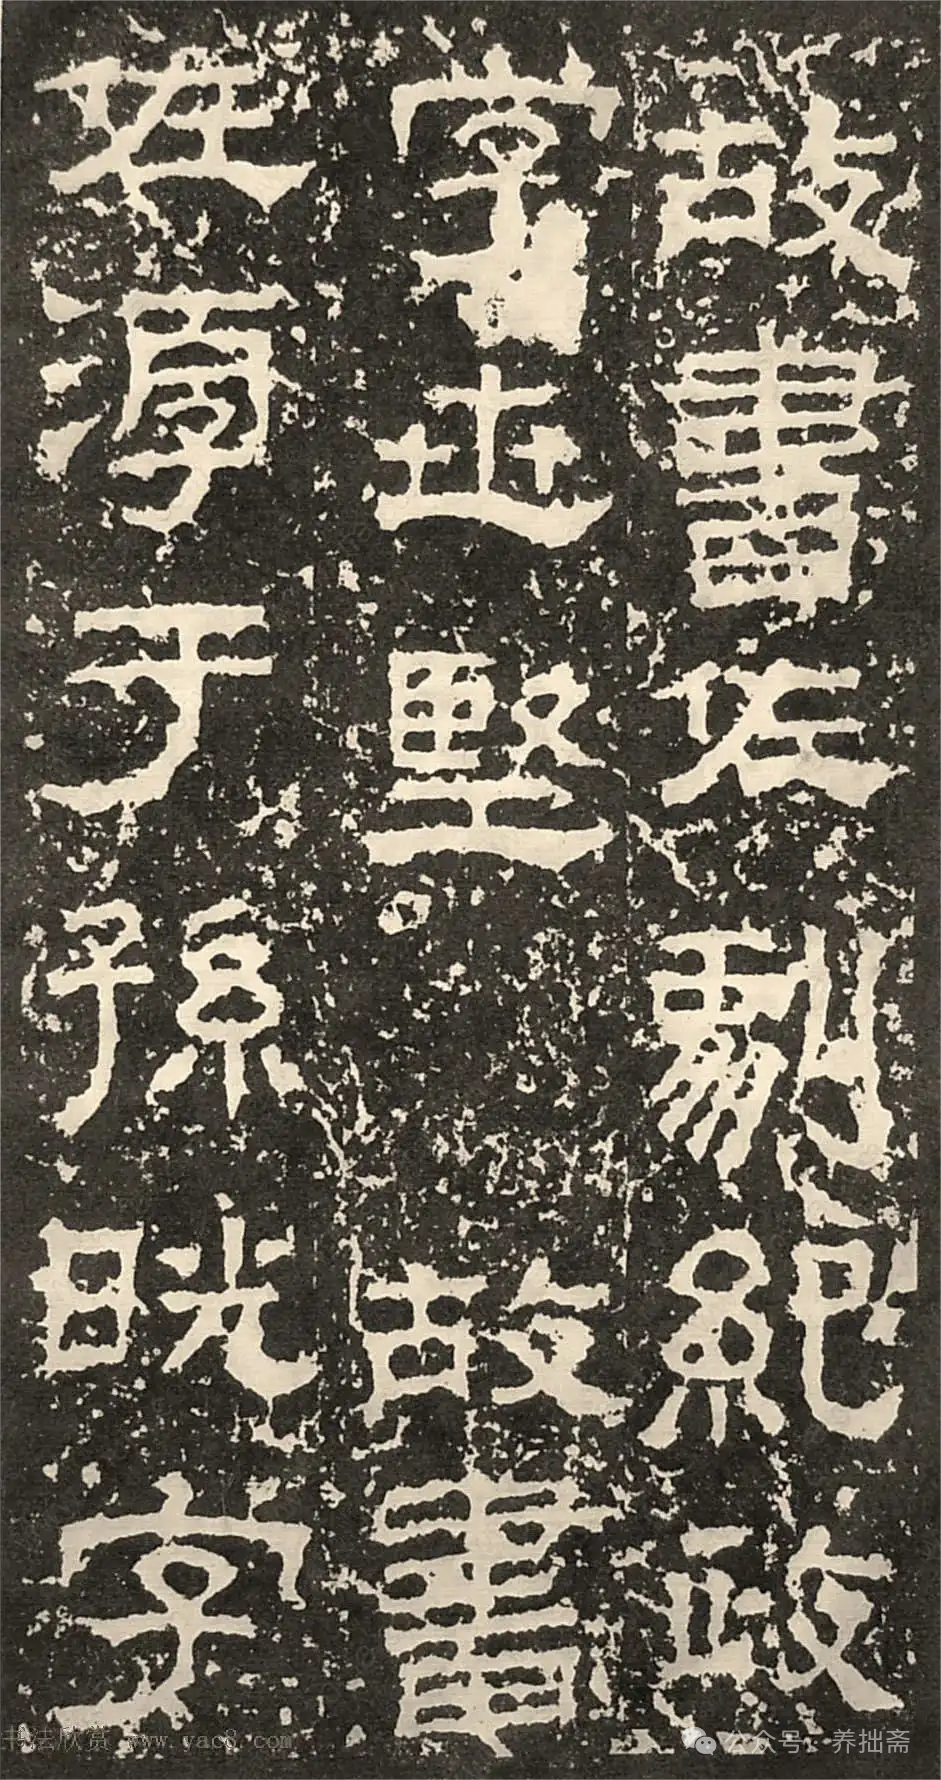 故書佐劇紀政
字世堅 故書
佐淳于孫晄字
书法欣赏 www.yac8.com
公众号：养拙斋